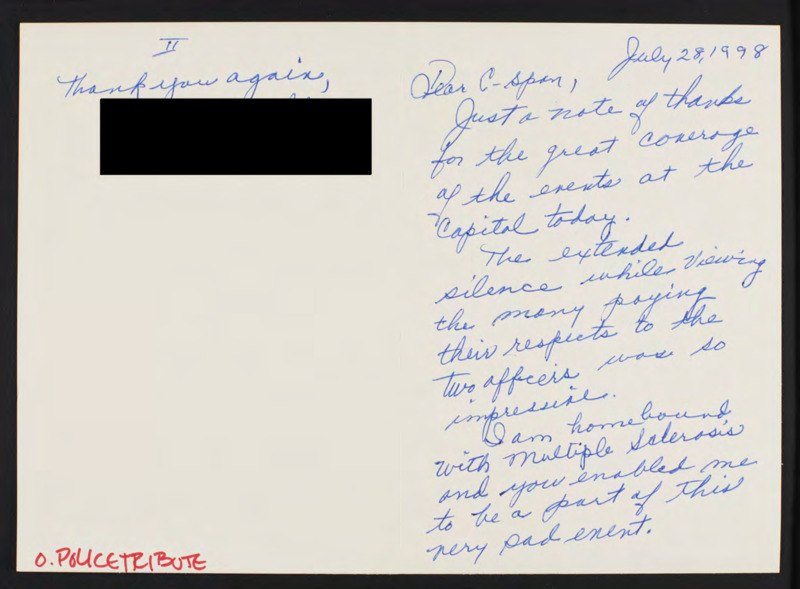 July 28, 1998
Dear C-span,
Just a note of thanks
for the great coverage
of the events at the
Capitol today.
The extended
silence while viewing
the many paying
their respects to the
two officers was so
impressive.
I am homebound
with Multiple Sclerosis
and you enabled me
to be a part of this
very sad event.
II
Thank you again,
O. POLICE TRIBUTE